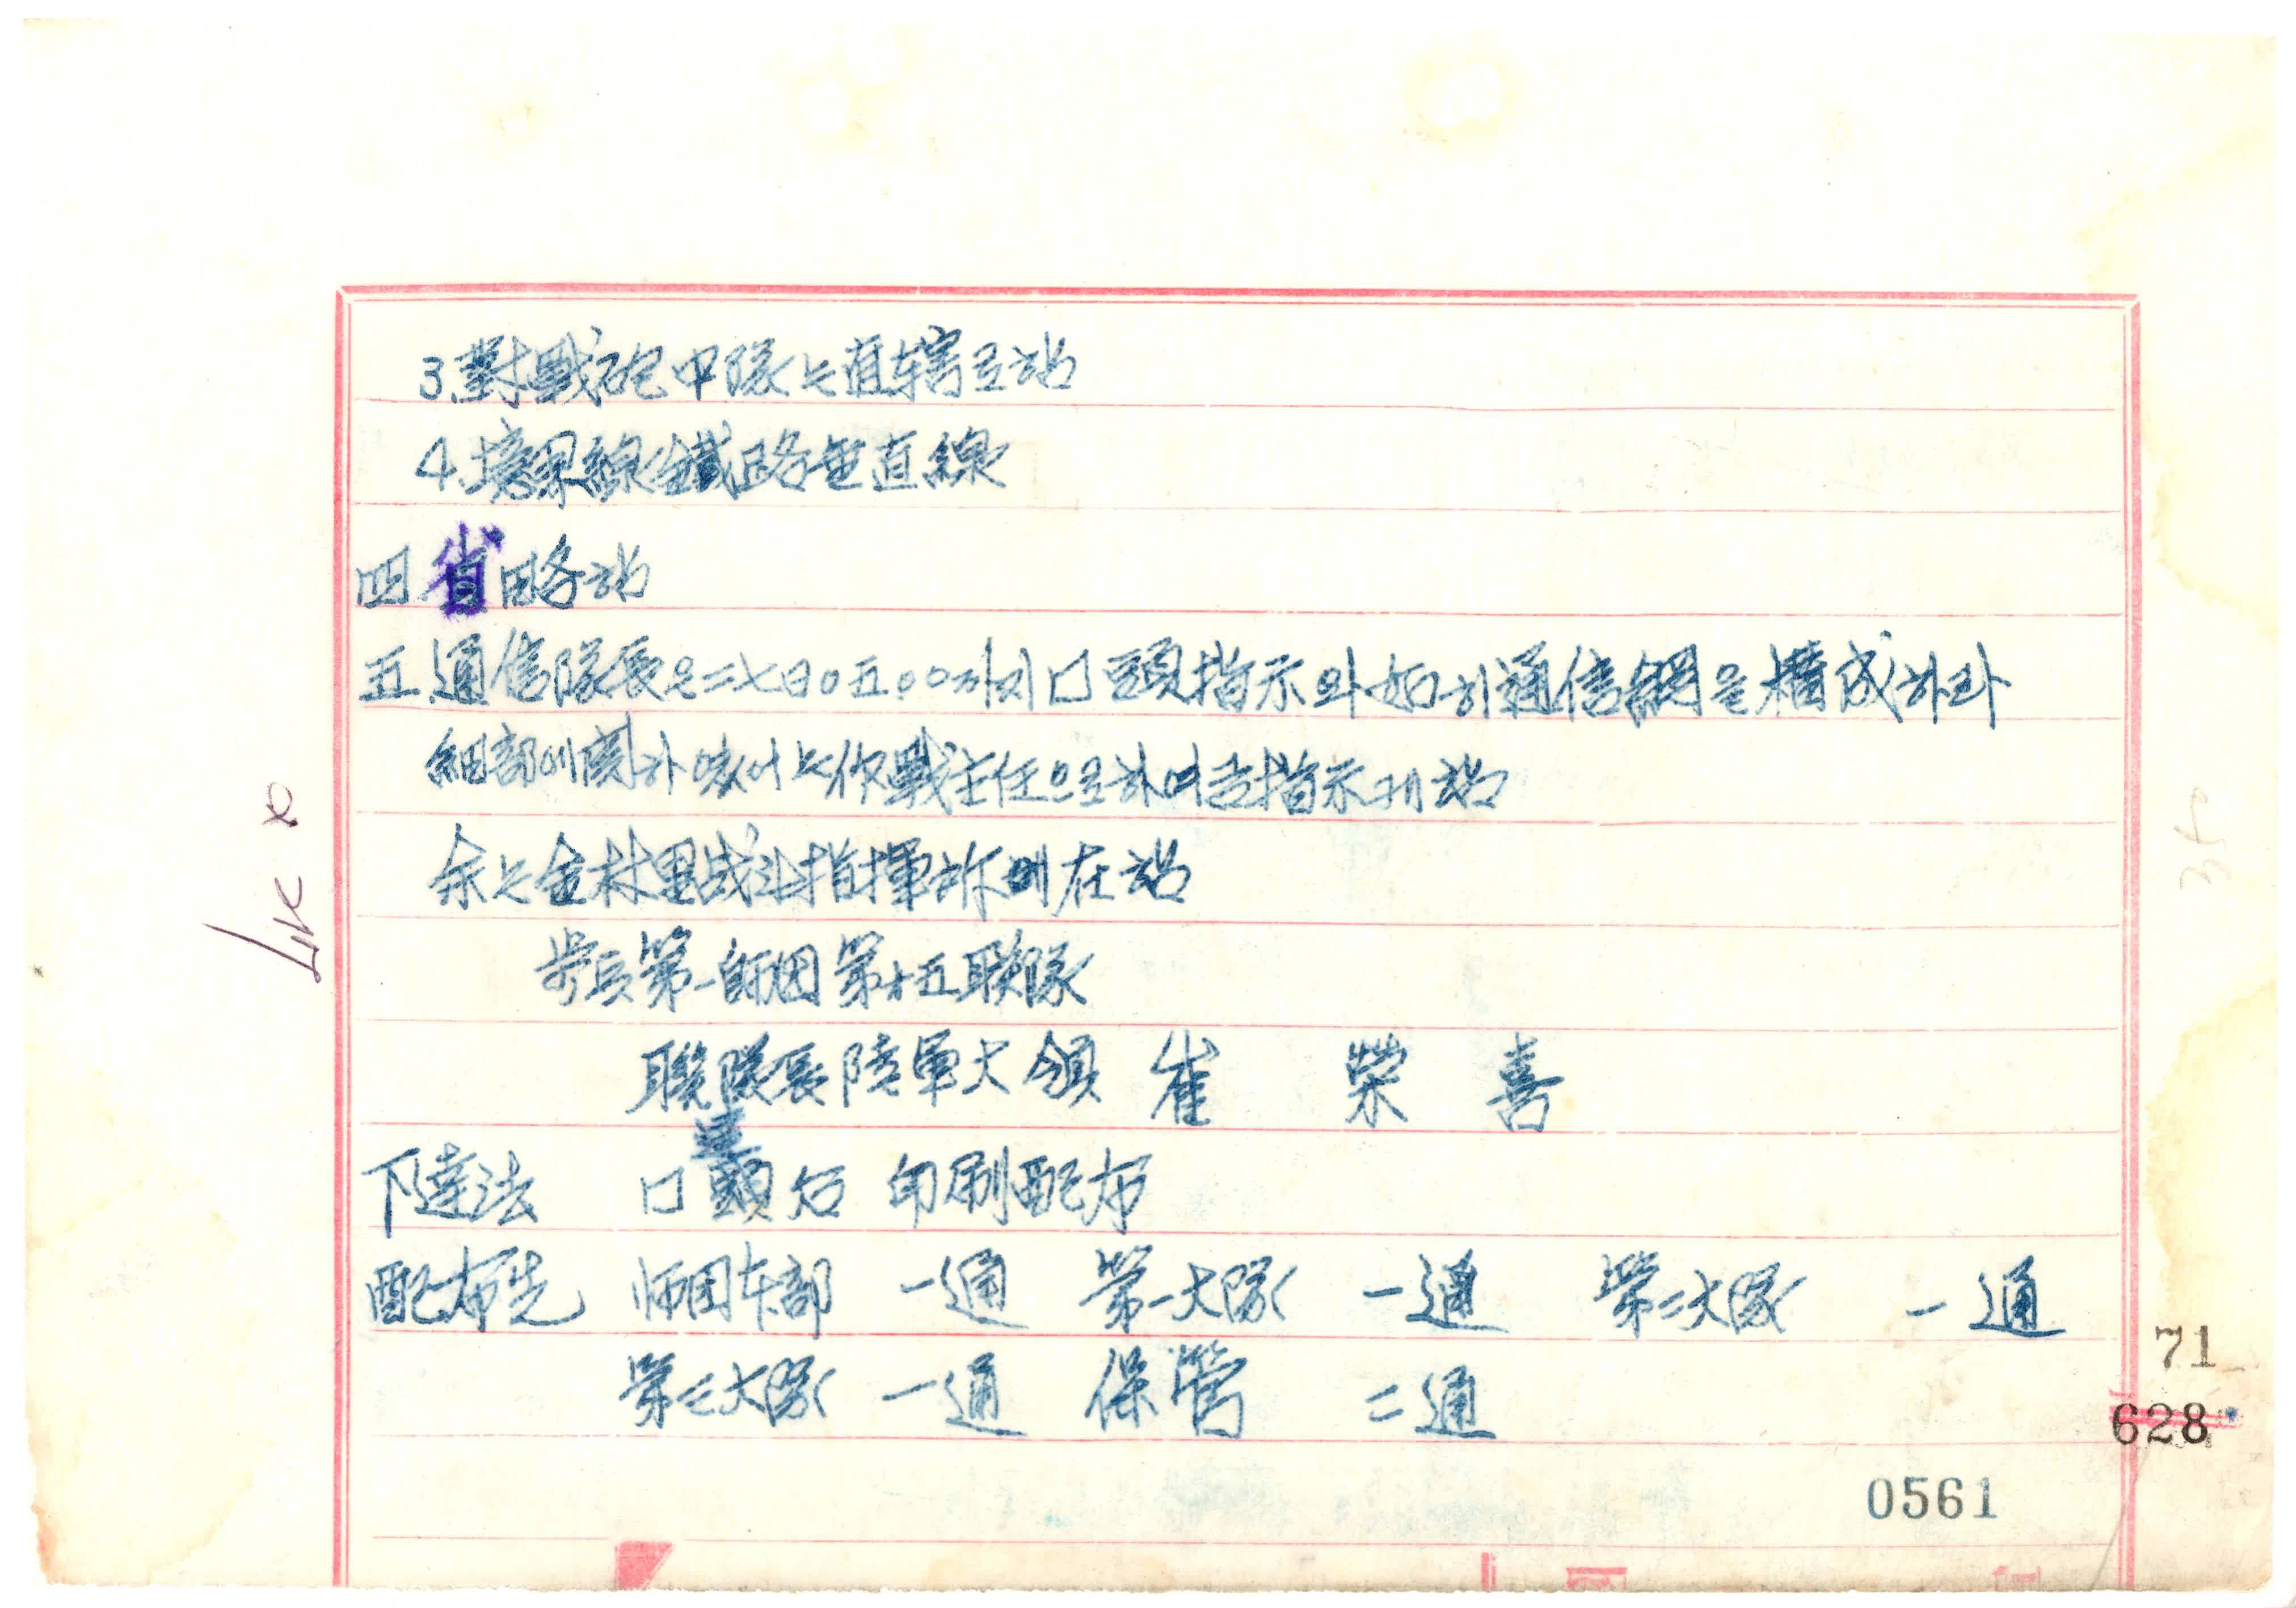 3. 對戰砲中隊는直轄로함
4. 境界線鐵路垂直線
四 省略함
五. 通信隊長은二七日〇五〇〇까지口頭指示와如히通信網을構成하라
細部에關하야서는作戰主任으로하여금指示케함
余는金村里战斗指揮所에在함
步兵第一師团第十五联隊
聯隊長陸軍大領 崔 榮 喜
下達法 口頭后 印刷配布
配布先 师団本部 一通 第一大隊 一通 第二大隊 一通
第三大隊 一通 保管 二通
71
628
0561